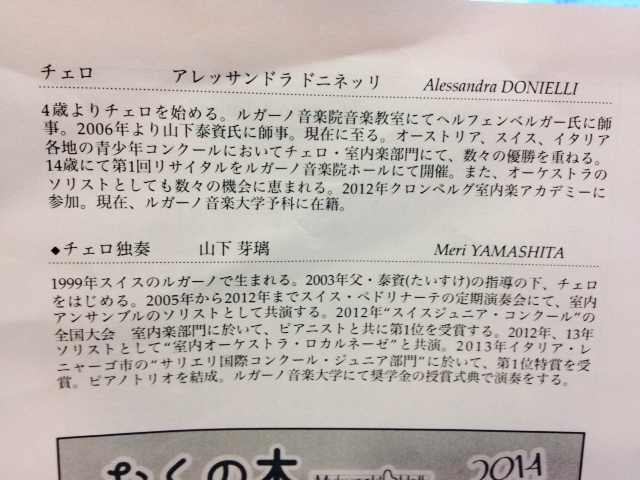 チェロ　アレッサンドラ ドニネッリ　Alessandra DONIELLI
4歳よりチェロを始める。ルガーノ音楽院音楽教室にてヘルフェンベルガー氏に師
事。2006年より山下泰資氏に師事。現在に至る。オーストリア、スイス、イタリア
各地の青少年コンクールにおいてチェロ・室内楽部門にて、数々の優勝を重ねる。
14歳にて第1回リサイタルをルガーノ音楽院ホールにて開催。また、オーケストラの
ソリストとしても数々の機会に恵まれる。2012年クロンベルグ室内楽アカデミーに
参加。現在、ルガーノ音楽大学予科に在籍。
◆チェロ独奏　山下 芽璃　Meri YAMASHITA
1999年スイスのルガーノで生まれる。2003年父・泰資(たいすけ)の指導の下、チェロ
をはじめる。2005年から2012年までスイス・ペドリナーテの定期演奏会にて、室内
アンサンブルのソリストとして共演する。2012年“スイスジュニア・コンクール”の
全国大会　室内楽部門に於いて、ピアニストと共に第1位を受賞する。2012年、13年
ソリストとして“室内オーケストラ・ロカルネーゼ”と共演。2013年イタリア・レ
ニャーゴ市の“サリエリ国際コンクール・ジュニア部門”に於いて、第1位特賞を受
賞。ピアノトリオを結成。ルガーノ音楽大学にて奨学金の授賞式典で演奏をする。
2014